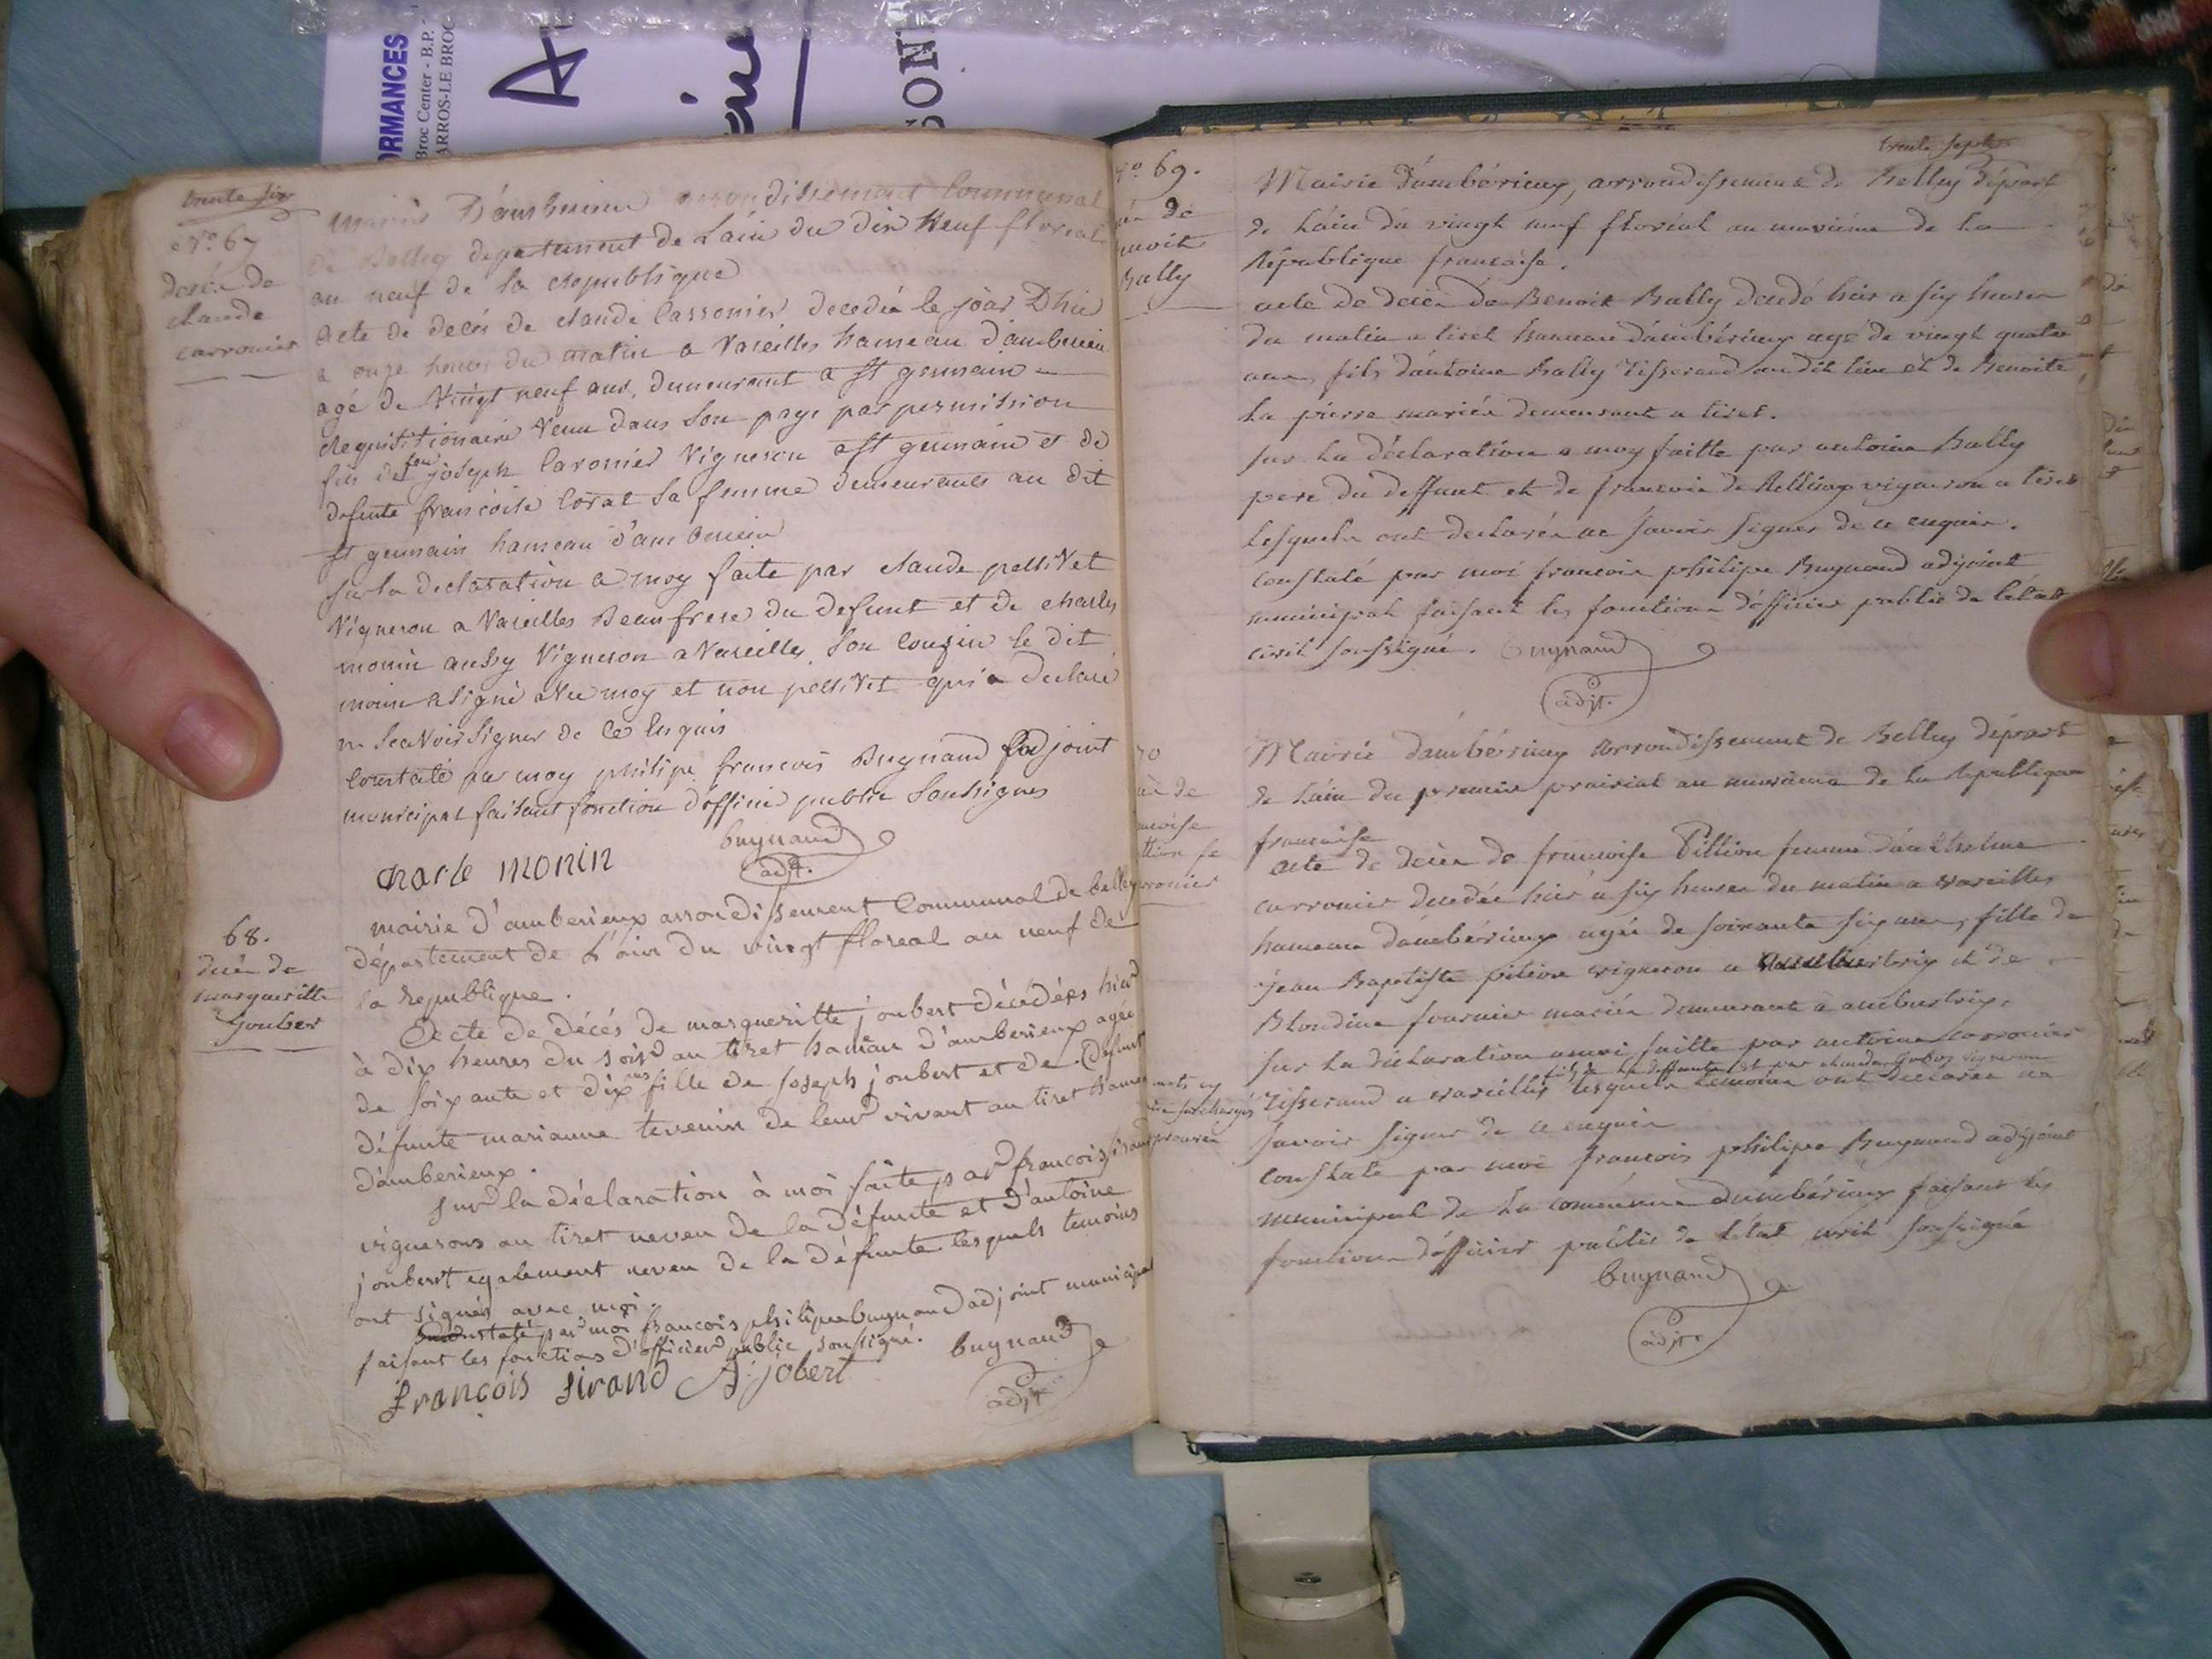 ORMANCES
Broc Center - B.P.
ARROS-LE BROC
SON
trente six
N.º 67
decès de
claude
carronier
mairie D'amberieux arrondissement Communal
de Belley departement de L'ain du dix Neuf floreal
an neuf de la republique
acte de decès de claude Carronier decedée le jour D'hier
a onze heures du matin a Vareilles hameau d'amberieu
agé de Vingt neuf ans, demeurant a st germain
Requisitionaire Venu dans son pays par permission
fils de feu joseph Caronier Vigneron a st germain et de
defunte françoise Corat sa femme demeurants au dit
st germain hameau d'amberieu
sur la declaration a moy faite par claude pellivet
Vigneron a Vareilles Beaufrere du defunt et de charles
monin aussy Vigneron a Vareilles son cousin le dit
monin a signé avec moy et non pellivet qui a declaré
ne scavoir signer de ce enquis
Constaté par moy philipe francois Bugnand adjoint
municipal faisant fonction d'officier public soussignes
charle monin
bugnand
adjt.
68.
decès de
margueritte
Joubert
mairie d'amberieux arrondissement Communal de belley
département de l'ain du vingt floreal an neuf de
la republique.
Acte de décés de margueritte joubert décédées hier
à dix heures du soir au tiret hameau d'amberieux agée
de soixante et dix ans fille de joseph joubert et de défunt
défunte marianne tevenin de leur vivant au tiret hameau
d'amberieux.
sur la déclaration à moi faite par francois sirand
vignerons au tiret neveu de la défunte et d'antoine
joubert egalement neveu de la défunte lesquels temoins
ont signés avec moi.
constaté par moi francois philipe bugnand adjoint municipal
faisant les fonctions d'officier public soussigné.
françois sirand A. jobert
bugnand
adjt
trente sept
Nº 69.
de
Benoit
Bally
Mairie d'ambérieux, arrondissement de Belley départ
de l'ain du vingt neuf floréal an neuvième de la
République francaise.
acte de decès de Benoit Bally decedé hier a six heures
du matin a tiret hameau d'ambérieux agé de vingt quatre
ans, fils d'antoine Bally Tisserand au dit lieu et de Benoite
La pierre mariés demeurant a tiret.
sur la déclaration a moy faitte par antoine Bally
pere du deffunt et de francois de vigneron a tiret
Lesquels ont declarés ne savoir signer de ce enquis.
constaté par moi francois philipe Bugnand adjoint
municipal faisant les fonctions d'officier public de l'état
civil soussigné. bugnand
adjt.
70
de
Mairie d'ambérieux arrondissement de Belley départ
de l'ain du premier prairial an neuvième de la République
francaise
acte de decès de francoise Pittion femme d'anthelme
carronier decedée hier a six heures du matin a vareilles
hameau d'ambérieux agée de soixante six ans, fille de
jean Baptiste pition vigneron a ambutrix et de
Blondine fournier mariés demeurant a ambutrix.
sur la déclaration a moi faitte par antoine carronier
fils de la deffunte et par claude vigneron
Tisserand a vareilles lesquels temoins ont declarés ne
savoir signer de ce enquis
constaté par moi francois philipe Bugnand adjoint
municipal de la commune d'ambérieux faisant les
fonctions d'officier public de l'état civil soussigné
bugnand
adjt.